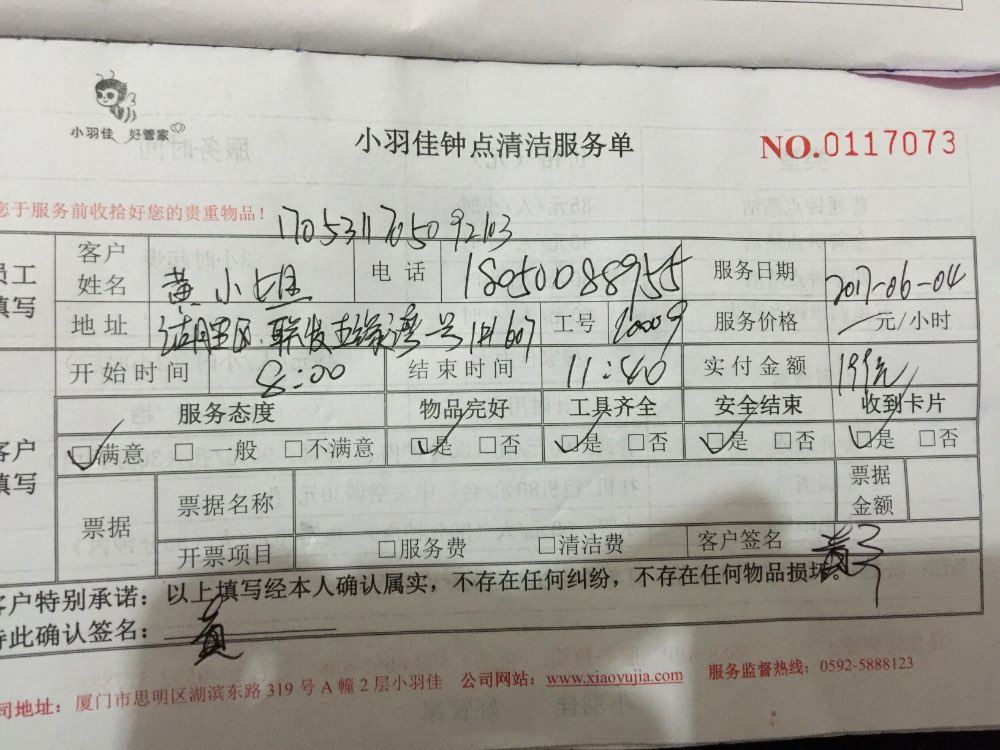 小羽佳 好管家
小羽佳钟点清洁服务单
NO.0117073
您于服务前收拾好您的贵重物品！
1705311705092103
员工填写
客户姓名 黄小姐 电话 18050088955 服务日期 2017-06-04
地址 湖里区.联发五缘湾一号 607 工号 20009 服务价格 一元/小时
开始时间 8:00 结束时间 11:40 实付金额 199元
客户填写
服务态度 物品完好 工具齐全 安全结束 收到卡片
☑满意 □一般 □不满意 ☑是 □否 ☑是 □否 ☑是 □否 ☑是 □否
票据 票据名称 票据金额
开票项目 □服务费 □清洁费 客户签名 黄
客户特别承诺：以上填写经本人确认属实，不存在任何纠纷，不存在任何物品损坏。
特此确认签名： 黄
司地址：厦门市思明区湖滨东路 319 号 A 幢 2 层小羽佳 公司网站：www.xiaoyujia.com 服务监督热线：0592-5888123